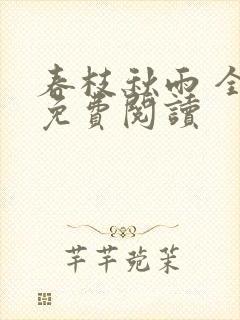 春枝秋雨 全
免費閱讀
芊芊菀茉